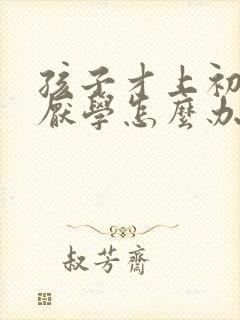 孩子才上初
厭學怎麼办
叔芳齋